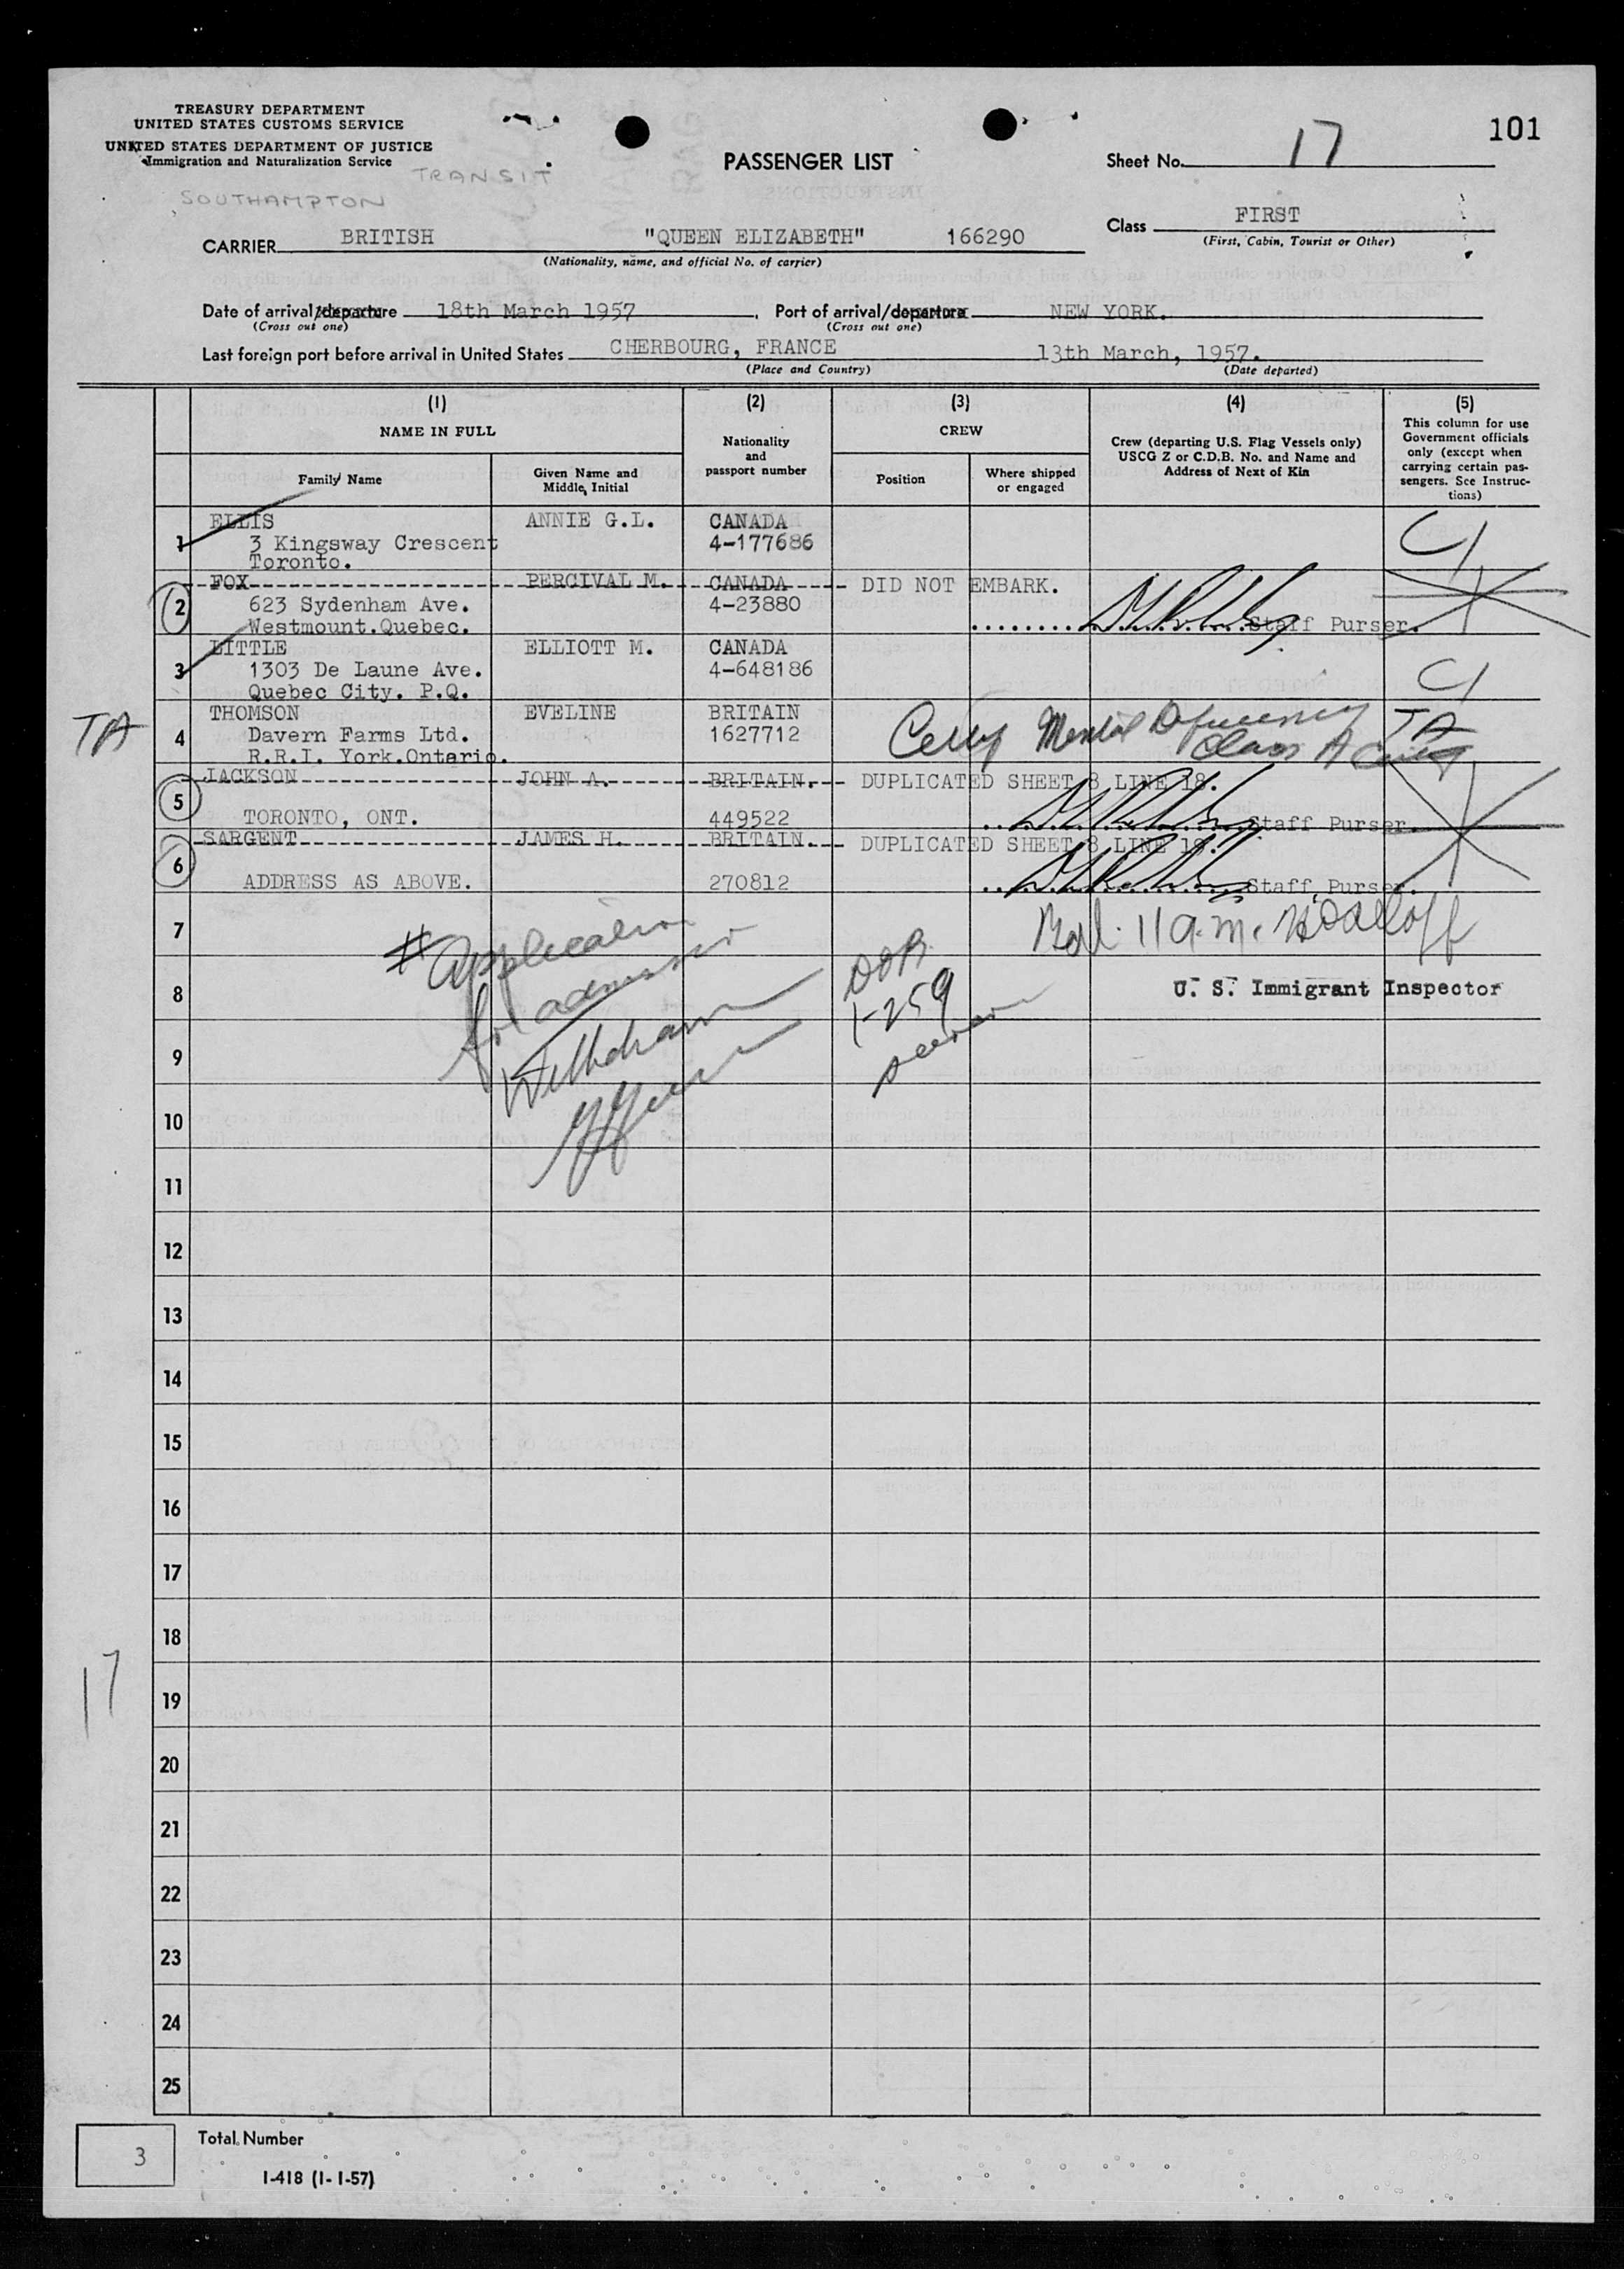 TREASURY DEPARTMENT
UNITED STATES CUSTOMS SERVICE
UNITED STATES DEPARTMENT OF JUSTICE
Immigration and Naturalization Service
TRANSIT
SOUTHAMPTON
PASSENGER LIST
Sheet No. 17
101
Class FIRST
(First, Cabin, Tourist or Other)
CARRIER BRITISH "QUEEN ELIZABETH" 166290
(Nationality, name, and official No. of carrier)
Date of arrival/departure 18th March 1957. Port of arrival/departure NEW YORK.
(Cross out one) (Cross out one)
Last foreign port before arrival in United States CHERBOURG, FRANCE 13th March, 1957.
(Place and Country) (Date departed)
(1) (2) (3) (4) (5)
NAME IN FULL
Family Name
Given Name and Middle Initial
Nationality and passport number
CREW
Position
Where shipped or engaged
Crew (departing U.S. Flag Vessels only)
USCG Z or C.D.B. No. and Name and
Address of Next of Kin
This column for use
Government officials
only (except when
carrying certain pas-
sengers. See Instruc-
tions)
1 ELLIS ANNIE G.L. CANADA
3 Kingsway Crescent 4-177686
Toronto.
2 FOX PERCIVAL M. CANADA DID NOT EMBARK.
623 Sydenham Ave. 4-23880
Westmount.Quebec. Staff Purser.
3 LITTLE ELLIOTT M. CANADA
1303 De Laune Ave. 4-648186
Quebec City. P.Q.
TA 4 THOMSON EVELINE BRITAIN Mental Deficiency TA
Davern Farms Ltd. 1627712 Class A
R.R.I. York.Ontario.
5 JACKSON JOHN A. BRITAIN. DUPLICATED SHEET 8 LINE 18.
TORONTO, ONT. 449522 Staff Purser.
6 SARGENT JAMES H. BRITAIN. DUPLICATED SHEET 8 LINE 19.
ADDRESS AS ABOVE. 270812 Staff Purser.
7
11 a.m.
# Application
for admission
Withdrawn
1-259
8
U. S. Immigrant Inspector
9
10
11
12
13
14
15
16
17
18
17
19
20
21
22
23
24
25
3 Total Number
I-418 (1-1-57)